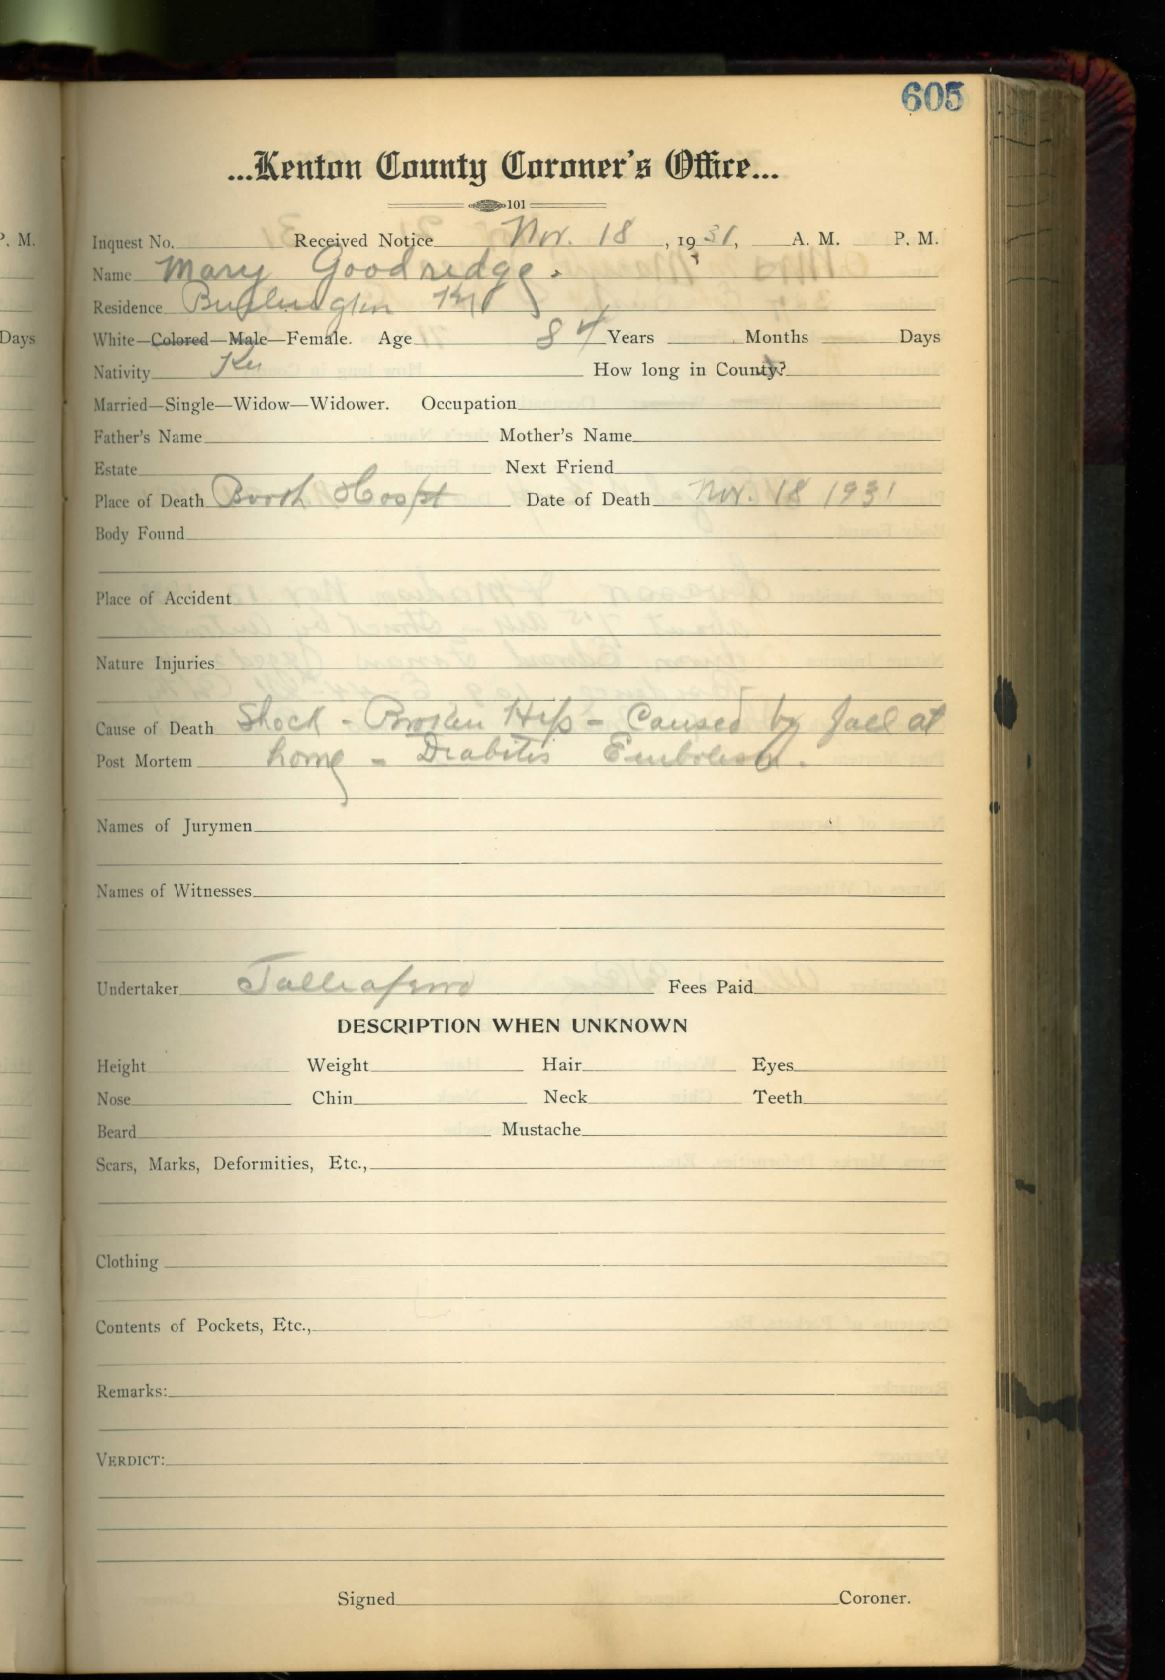 605
...Kenton County Coroner's Office...
101
P. M.
Inquest No. Received Notice Nov. 18, 1931, A. M. P. M.
Name Mary Goodridge.
Residence Burlington Ky
Days
White—Colored—Male—Female. Age 84 Years Months Days
Nativity Ky How long in County?
Married—Single—Widow—Widower. Occupation
Father's Name Mother's Name
Estate Next Friend
Place of Death Booth Hospt Date of Death Nov. 18 1931
Body Found
Place of Accident
Nature Injuries
Cause of Death Shock - Broken Hip - Caused by fall at
Post Mortem home - Diabitis Embolism.
Names of Jurymen
Names of Witnesses
Undertaker Talliaferro Fees Paid
DESCRIPTION WHEN UNKNOWN
Height Weight Hair Eyes
Nose Chin Neck Teeth
Beard Mustache
Scars, Marks, Deformities, Etc.,
Clothing
Contents of Pockets, Etc.,
Remarks:
VERDICT:
Signed Coroner.